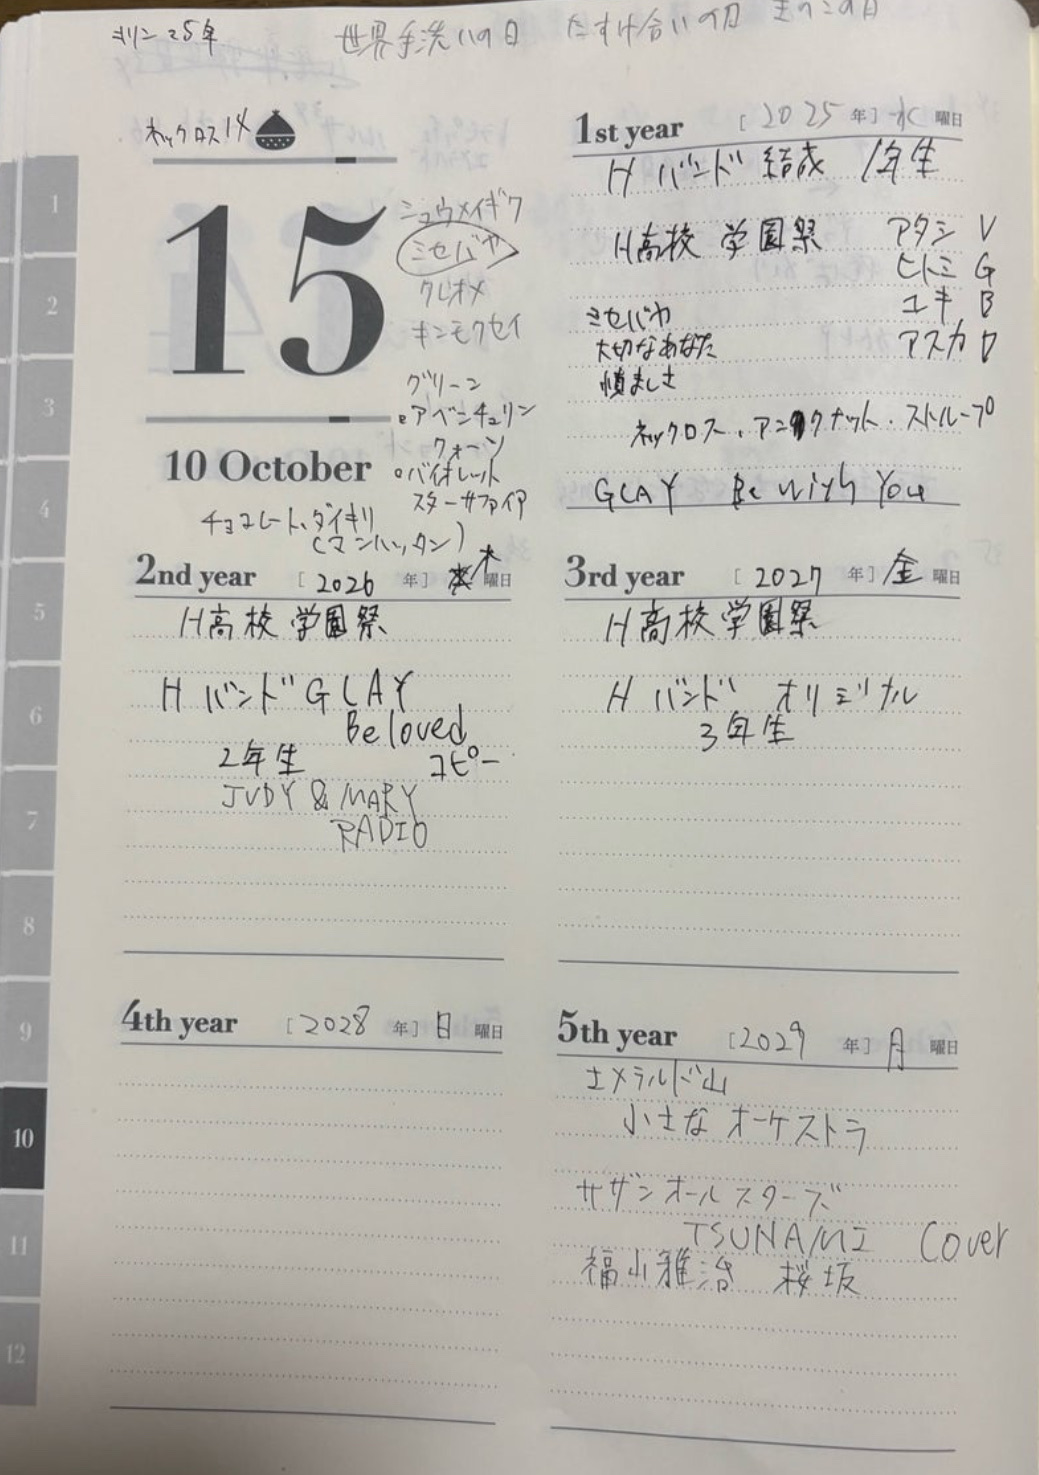 キリン25年 世界手洗いの日 たすけ合いの日 きのこの日
ネックロス14
15
シュウメイギク
ミセバヤ
クレオメ
キンモクセイ
グリーン
アベンチュリン
クォーツ
バイオレット
スターサファイア
10 October
チョコレート、ダイキリ
(マンハッタン)
1st year [2025年] 水曜日
H バンド 結成 1年生
H高校 学園祭 アタシ V
ヒトミ G
ユキ B
ミセバヤ
大切なあなた アスカ D
慎ましさ
ネックロス・アンクナット・ストループ
GLAY Be With You
2nd year [2026年] 木曜日
H高校 学園祭
H バンド GLAY
Beloved
2年生 コピー
JUDY & MARY
RADIO
3rd year [2027年] 金曜日
H高校学園祭
H バンド オリジナル
3年生
4th year [2028年] 日曜日
5th year [2029年] 月曜日
エメラルド山
小さな オーケストラ
サザンオールスターズ
TSUNAMI Cover
福山雅治 桜坂
1
2
3
4
5
6
7
8
9
10
11
12